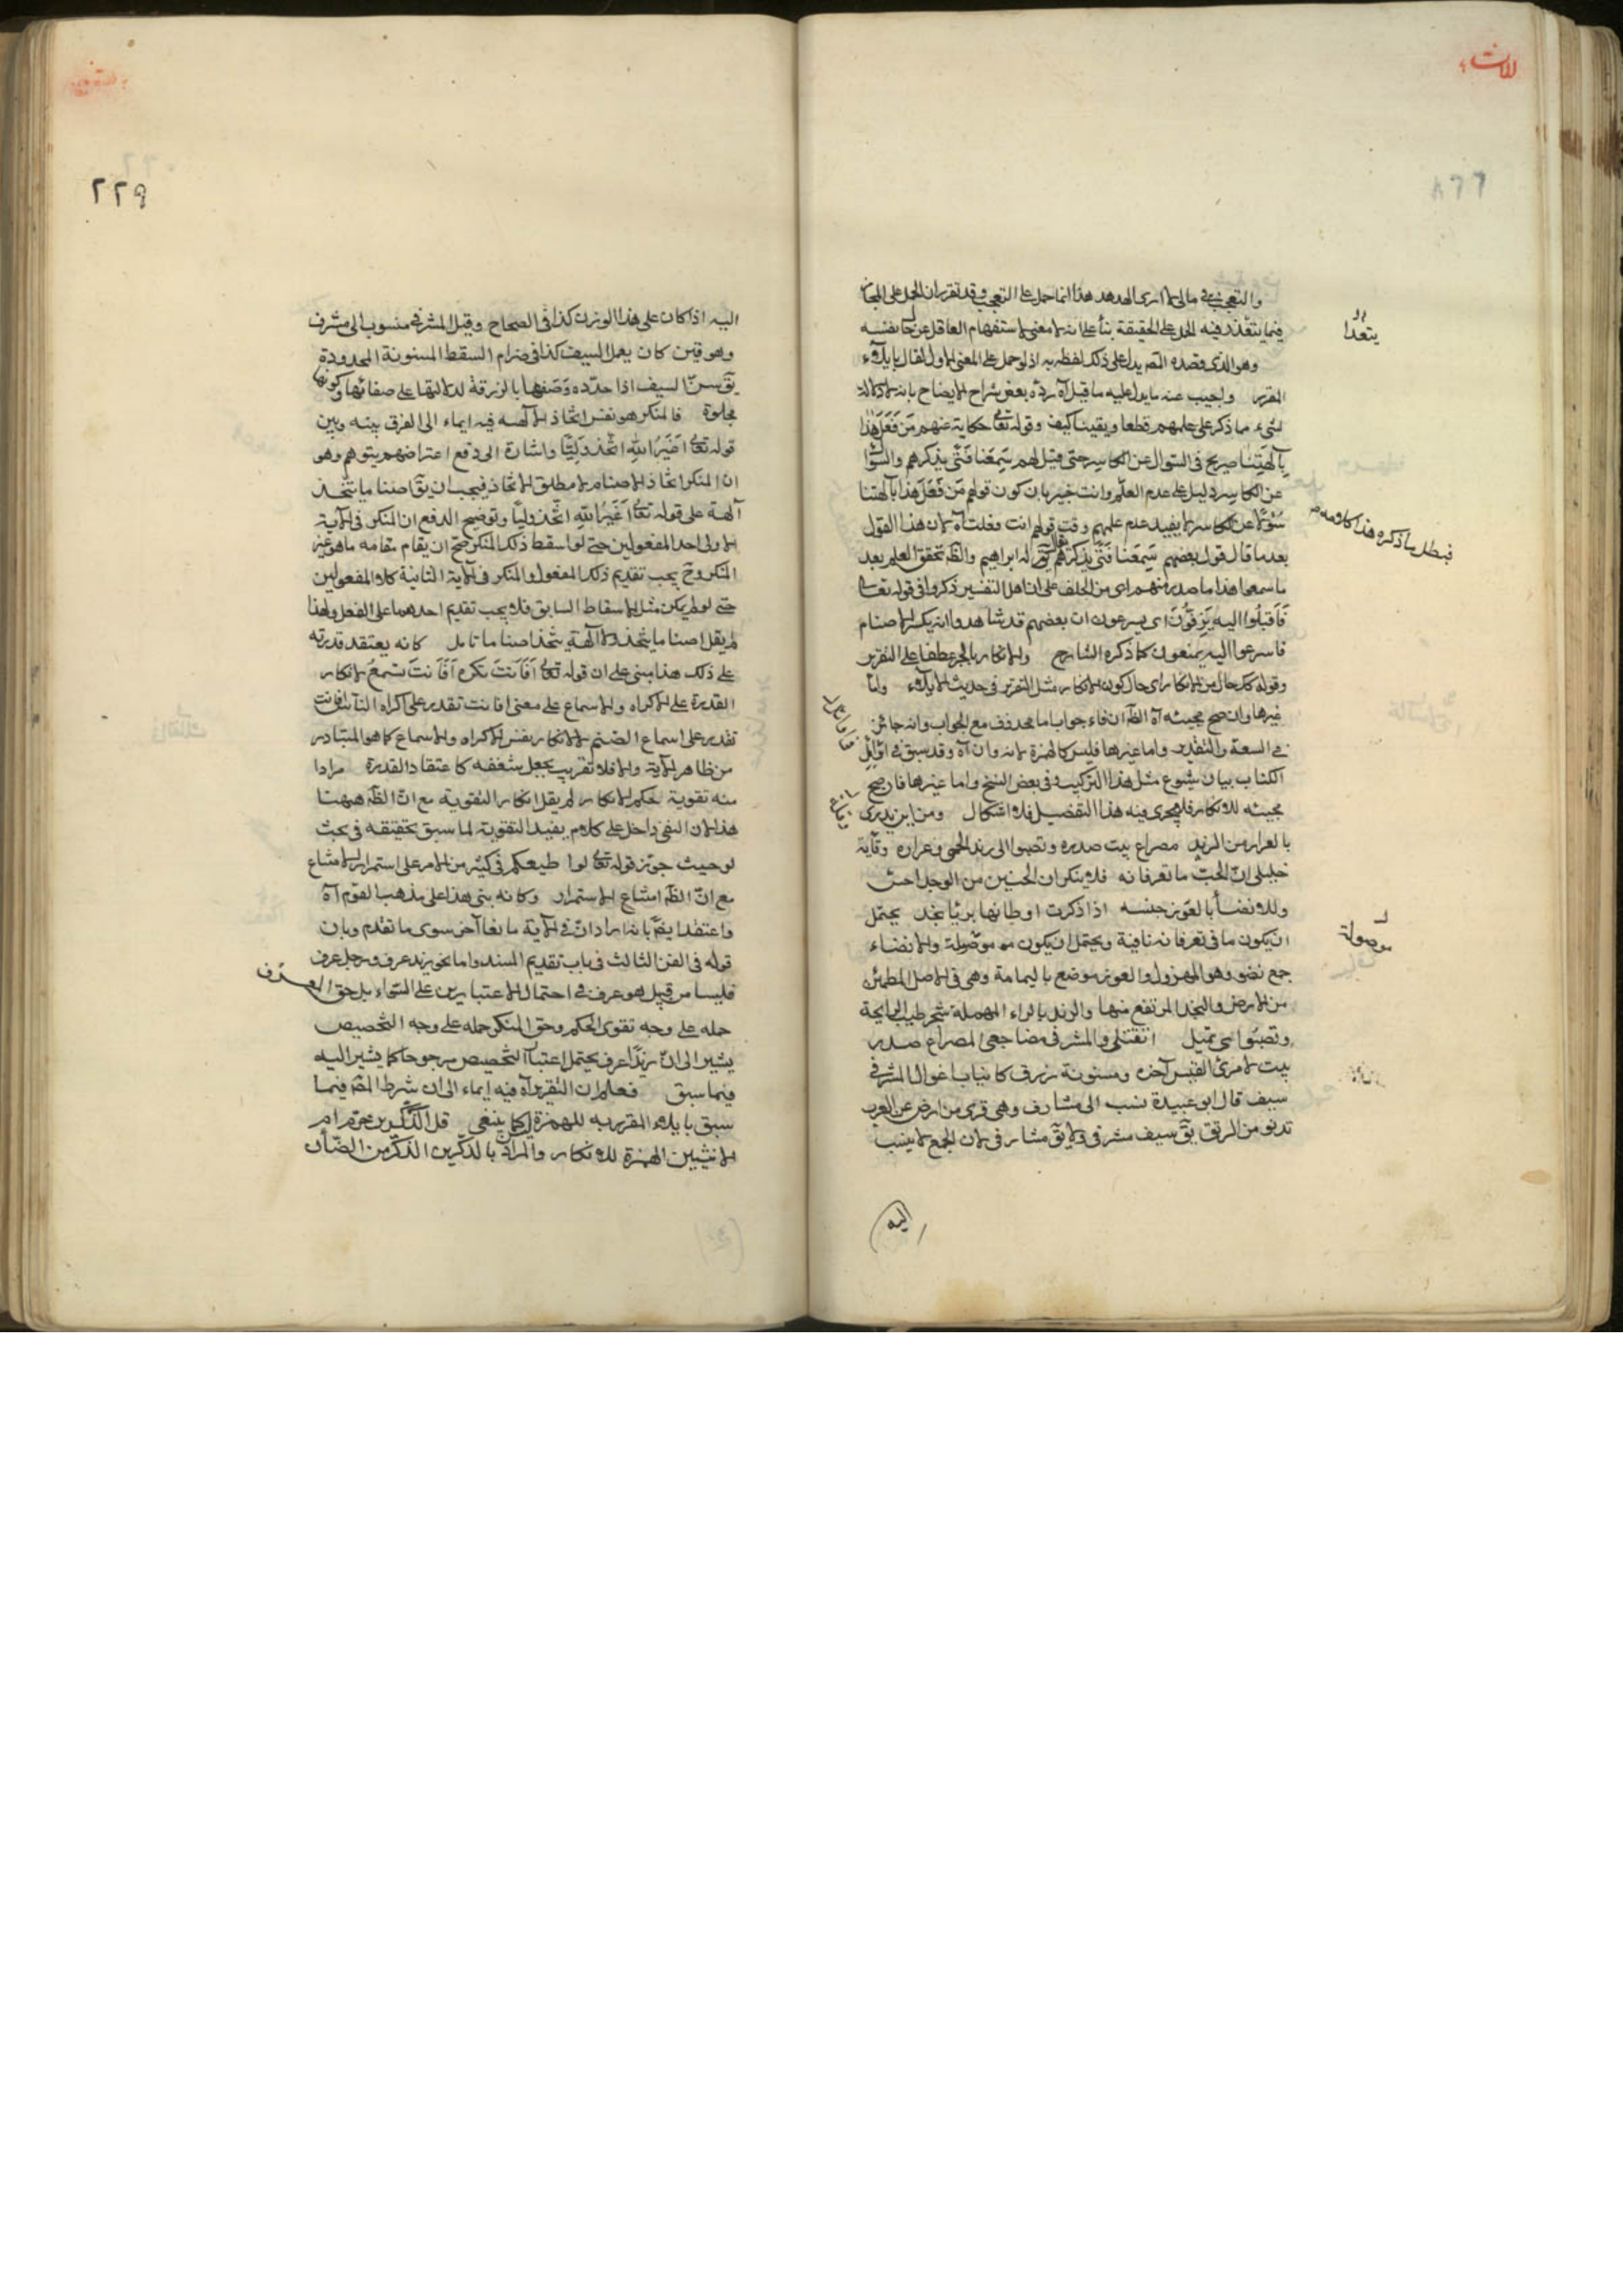 والتعجب نحو مالي لا ارى الهدهد هذا انما حمل على التعجب وقد تقرر ان الحمل على المجاز
فيما يتعذر فيه الحمل على الحقيقة بناء على انه لا معنى لاستفهام العاقل عن حال نفسه
وهو الذي قصده التصديق على ذلك لفظه به اذ لو حمل على المعنى الاول لقال بايلاء
المقرر واجيب عنه ما يدل عليه ما قيل آه رده بعض شراح الايضاح بانه لا دلالة
لشيء مما ذكر على علمهم قطعا ويقينا كيف وقوله تعالى حكاية عنهم من فعل هذا
بآلهتنا صريح في السؤال عن الكاسر حتى قيل لهم سمعنا فتى يذكرهم والسؤال
عن الكاسر دليل على عدم العلم وانت خبير بان كون قولهم من فعل هذا بآلهتنا
سؤالا عن الكاسر لا يفيد عدم علمهم وقت قولهم انت فعلت آه لان هذا القول
بعد ما قال قول بعضهم سمعنا فتى يذكرهم يقال له ابراهيم والظ تحقق العلم بعد
ما سمعوا هذا ما صدر منهم اي من الحلف على ان اهل التفسير ذكروا في قوله تعالى
فاقبلوا اليه يزفون اي يسرعون ان بعضهم قد شاهدوا انه يكسر الاصنام
فاسرعوا اليه يمنعونه كما ذكره الشارح والانكار بالجر عطفا على التقرير
وقوله كذلك حال من الانكار اي حال كون الانكار مثل التقرير في حديث الايلاء واما
غيرها وان صح مجيئه آه الظ ان فاء جواب اما محذوف مع الجواب وانه جائز
في السعة والتقدير واما غيرها فليس كالهمزة لانه وان آه وقد سبق في اوائل
الكتاب بيان شيوع مثل هذا التركيب وفي بعض النسخ واما غيرها فان صح
مجيئه للانكار فلا يجري فيه هذا التفصيل فلا اشكال ومن اين يدري
بالعرار من الرند مصراع بيت صدره وتصبوا الى رند الحمى وعراره وقبله
خليلي ان الحب ما تعرفانه فلا ينكران الحنين من الوجد احن
وللانضاء بالغور حنينه اذا ذكرت اوطانها بربا نجد يحتمل
ان يكون ما في تعرفانه نافية ويحتمل ان يكون موصولة والانضاء
جمع نضو وهو المهزول والغور موضع باليمامة وهي في الاصل المطمئن
من الارض والنجد المرتفع منها والرند بالراء المهملة شجر طيب الرايحة
وتصبوا اي تميل ايقتلني والمشرفي مضاجعي المصراع صدر
بيت لامرئ القيس آخره ومسنونة زرق كانياب اغوال المشرفي
سيف قال ابو عبيدة نسب الى مشارف وهي قرى من ارض العرب
تدنو من الريف يق سيف مشرفي ولا يق مشارفي لان الجمع لا ينسب
اليه
يتعدا
فبطل ما ذكره هذا كلامه
موصولة
٢٢٩
اليه اذا كان على هذا الوزن كذا في الصحاح وقيل المشرفي منسوب الى مشرف
وهو قين كان يعمل السيف كذا في ضرام السقط المسنونة المحدودة
يق سن السيف اذا حدده وصفها بالزرقة لدلالتها على صفائها وكونها
مجلوة فالمنكر هو نفس اتخاذ الآلهة فيه ايماء الى الفرق بينه وبين
قوله تعالى اغير الله اتخذ وليا واشارة الى دفع اعتراضهم يتوهم وهو
ان المنكر اتخاذ الاصنام لا مطلق الاتخاذ فيجب ان يق اصناما يتخذ
آلهة على قوله تعالى اغير الله اتخذ وليا وتوضيح الدفع ان المنكر في الآية
الاولى احد المفعولين حتى لو اسقط ذلك المنكر صح ان يقام مقامه ما هو غير
المنكر وح يجب تقديم ذلك المفعول والمنكر في الآية الثانية كلا المفعولين
حتى لو لم يكن مثل الاسقاط السابق فلا يجب تقديم احدهما على الفعل ولهذا
لم يقل اصناما يتخذ ولا آلهة يتخذ اصناما تامل كانه يعتقد قدرته
على ذلك هذا مبنى على ان قوله تعالى افانت تكره افانت تسمع لانكار
القدرة على الاكراه والاسماع على معنى افانت تقدر على اكراه الناس افانت
تقدر على اسماع الصم لا لانكار نفس الاكراه والاسماع كما هو المتبادر
من ظاهر الآية والا فلا تقريب بجعل شغفه كاعتقاد القدرة مرادا
منه تقوية حكم الانكار لم يقل انكار التقوية مع ان الظ ههنا
هذا لان النفي داخل على كلام يفيد التقوية لما سبق تحقيقه في بحث
لو حيث جوز قوله تعالى لو يطيعكم في كثير من الامر على استمرار الامتناع
مع ان الظ امتناع الاستمرار وكانه بنى هذا على مذهب القوم آه
واعتضد ايض بانه اراد ان في الآية مانعا آخر سوى ما تقدم وبان
قوله في الفن الثالث في باب تقديم المسند واما نحو زيد عرف ورجل عرف
فليسا من قبيل هو عرف في احتمال الاعتبارين على السواء بل حق المعرف
حمله على وجه تقوى الحكم وحق المنكر حمله على وجه التخصيص
يشير الى ان زيدا عرف يحتمل اعتبار التخصيص مرجوحا كما يشير اليه
فيما سبق فعلم ان التقرير آه فيه ايماء الى ان شرط المصنف فيما
سبق بايلاء المقرر به للهمزة كما ينبغي قل الذكرين حرم ام
الانثيين الهمزة للانكار والمراد بالذكرين الذكر من الضأن